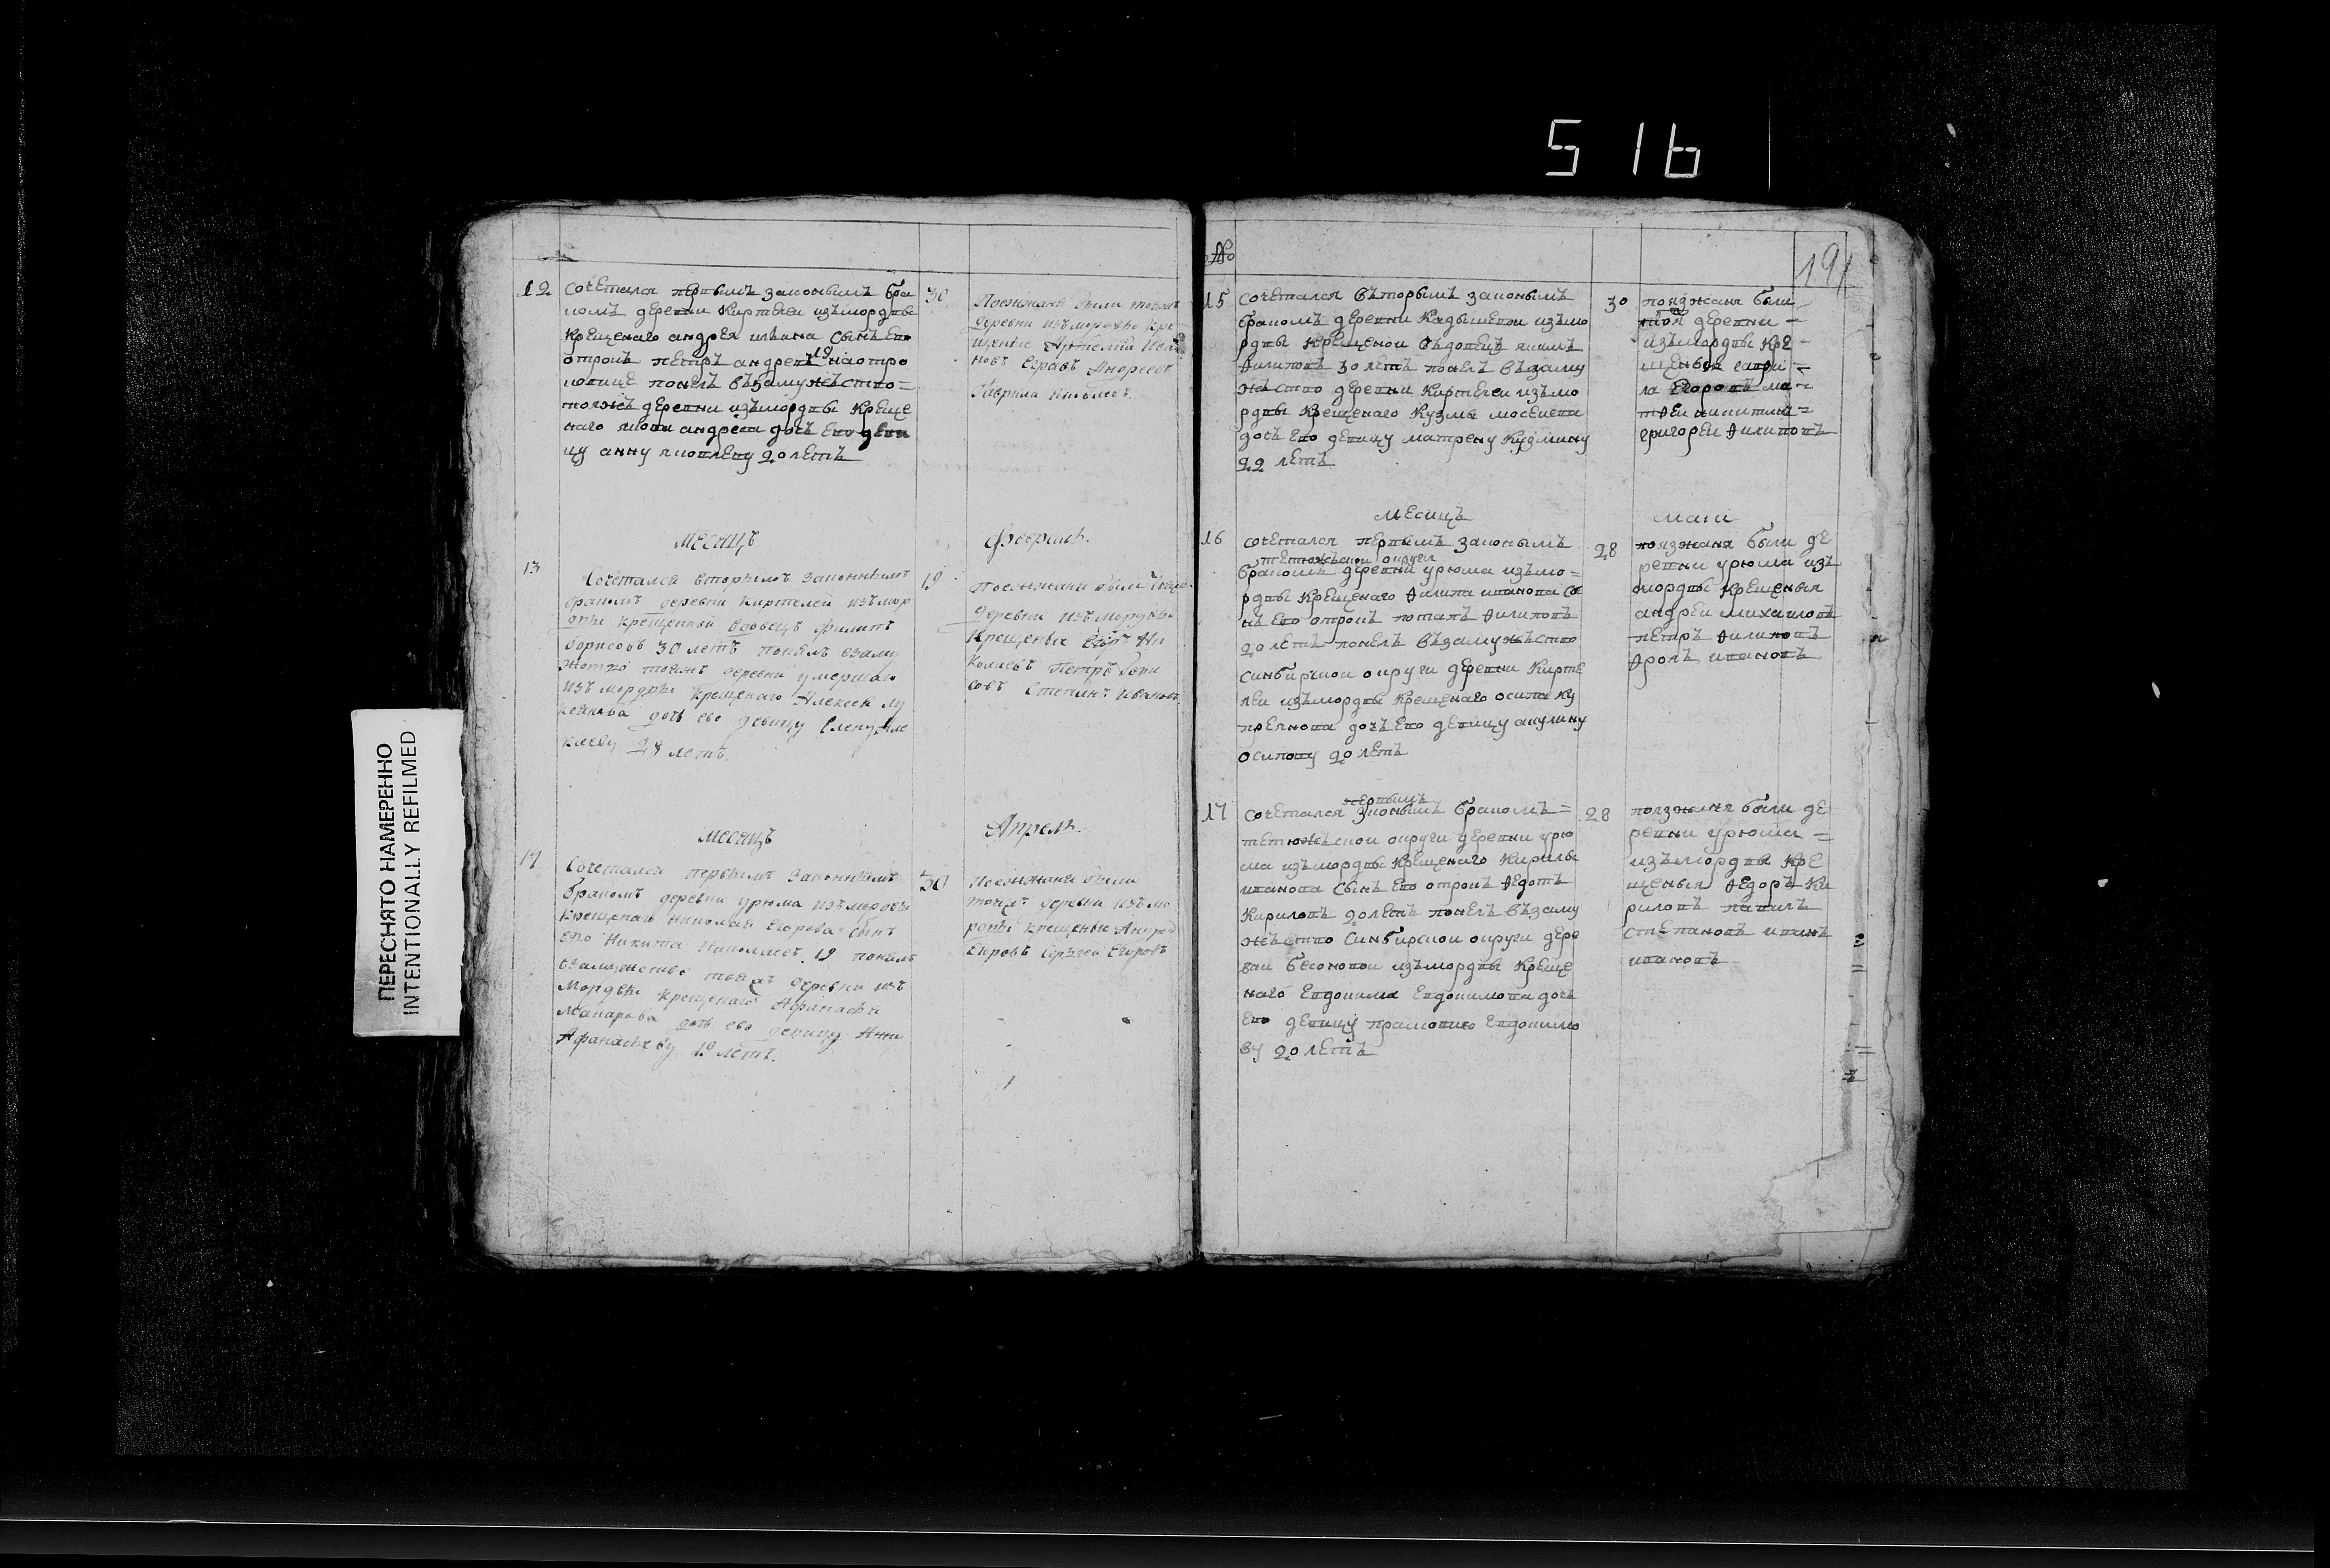 516
ПЕРЕСНЯТО НАМЕРЕННО
INTENTIONALLY REFILMED
12
сочетался первымъ законымъ бра
комъ деревни Киртелеи изъмордвы
крещенаго андрея ильина сынъ ево
отрокъ петръ андреевъ 19 наотро
ковице понелъ възамужъство=
тояжъ деревни изъмордвы креще
наго якова андреева дочь ево деви
цу анну яковлеву 20 летъ
30
Поезжани были тояжъ
деревни изъ мордвы кре
щеные
Егравъ Андреевъ
Гаврила
месяцъ
Февраль.
13
Сочетался вторымъ законнымъ
бракомъ деревни Киртелей изъ мор
двы крещенной вдовецъ Филипъ
Борисовъ 30 летъ понялъ взаму
жство тоежъ деревни умершаго
изъ мордвы крещенаго Алексея
дочь ево девицу Елену Але
28 летъ.
19
Поезжани были
деревни изъ мордвы
крещеные Ни
колаевъ Петръ Бори
совъ Степанъ Ивановъ
месяцъ
Апрель.
14
Сочетался первымъ законнымъ
бракомъ деревни урюма изъ мордвы
крещенаго Николая Егорова сынъ
ево Никита Николаевъ 19 понялъ
взамужство тояжъ деревни изъ
мордвы крещенаго Афанасья
Макарова дочь ево девицу Анну
Афанасьеву 19 летъ.
30
Поезжани были
тояжъ деревни изъ мо
рдвы крещеные Андрей
Егоровъ Сергей Егоровъ
№
191
15
сочетался въторымъ законымъ
бракомъ деревни Кадышеви изъмо
рдвы крещенои въдовецъ якимъ
филиповъ 30 летъ понелъ въ заму
жъство деревни Киртелеи изъмо
рдвы крещенаго Кузмы мосеиева
дочь ево девицу матрену кузмину
22 летъ
30
поязжаня были
тоя деревни =
изъмордвы кре =
щеныя гаври =
ла егоровъ ма=
твеи никитинъ=
григореи филиповъ
месицъ
маиі
16
сочетался первымъ законымъ
тетюжъскои округи
бракомъ деревни урюма изъмо=
рдвы крещенаго филипа иванова сы
нъ ево отрокъ потапъ филиповъ
20 летъ понелъ възамужъство
синбирскои округи деревни Кирте
леи изъмордвы крещенаго осипа ку
преянова дочъ ево девицу акулину
осипову 20 летъ
28
поязжаня были де
ревни урюма изъ
мордвы крещеныя
андреи михаиловъ
петръ филиповъ
фролъ ивановъ
17
первымъ
сочетался зконымъ бракомъ =
тетюжъскои округи деревни урю
ма изъмордвы крещенаго Кирилы
иванова сынъ ево отрокъ федотъ
Кириловъ 20 летъ понелъ възаму
жъство Синбирскои округи дере
вни бесоновои изъмордвы креще
наго Евдокима Евдокимова дочь
ево девицу прасковию Евдокимо
ву 20 летъ
28
поязжаня были де
ревни урюма =
изъмордвы кре
щеныя федоръ Ки
риловъ павилъ
степановъ иванъ
ивановъ